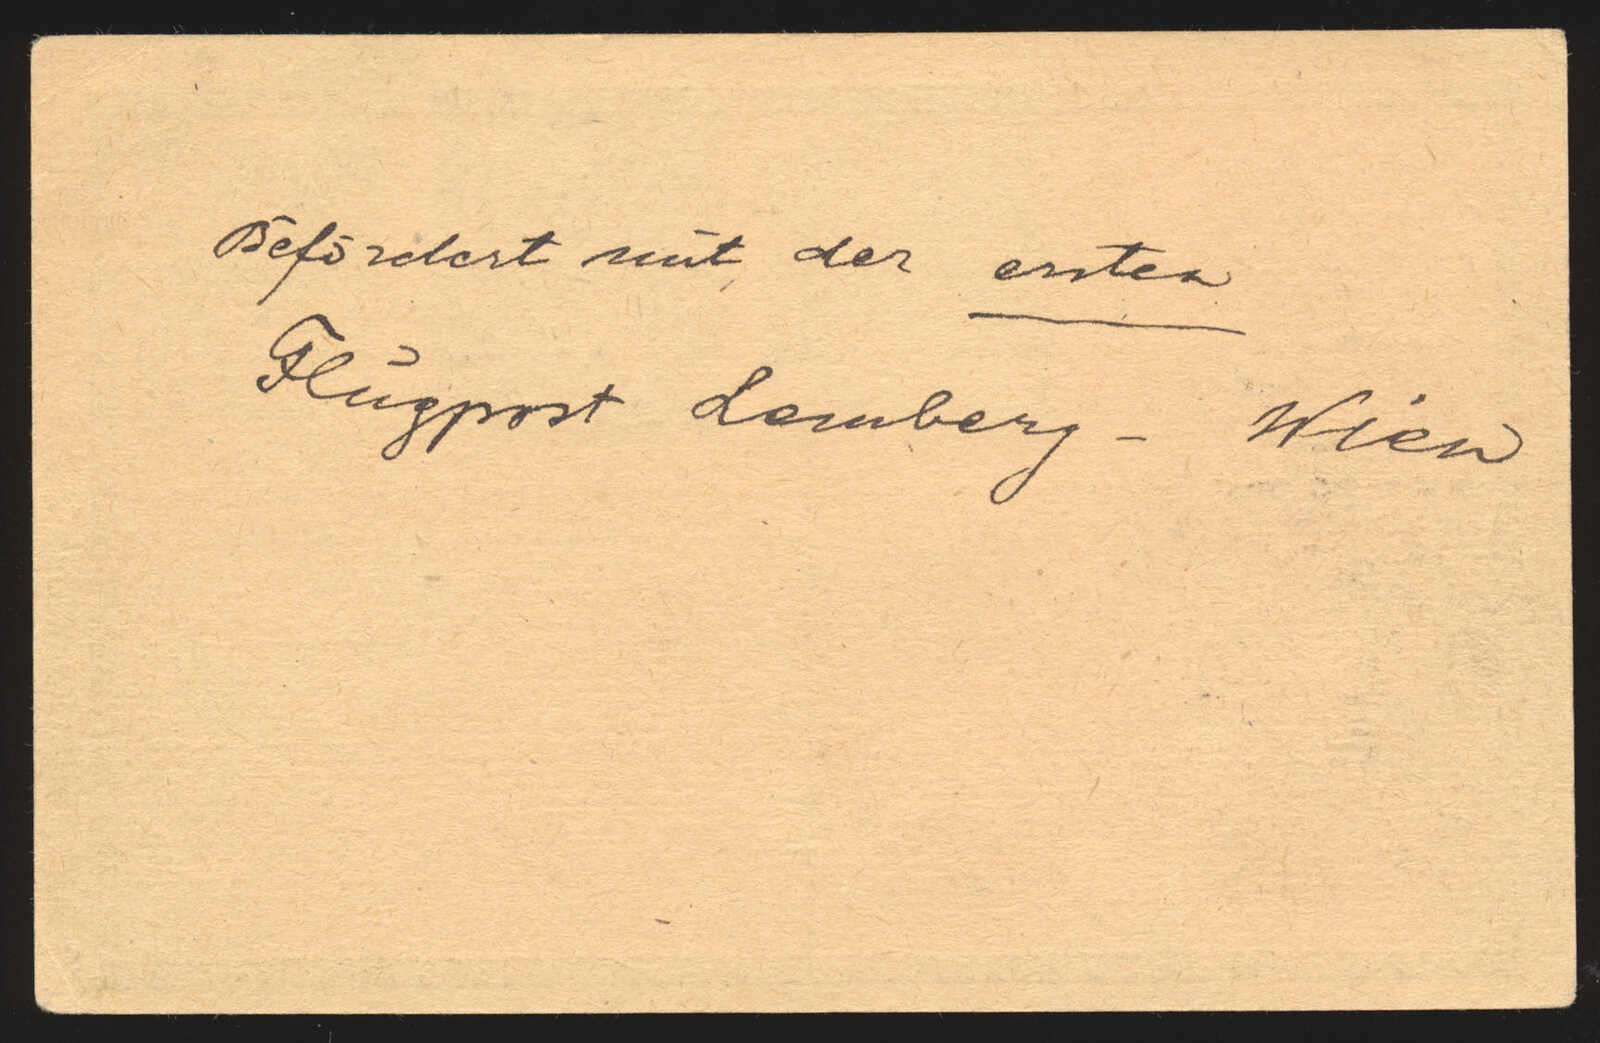 Befördert mit der ersten
Flugpost Lemberg - Wien